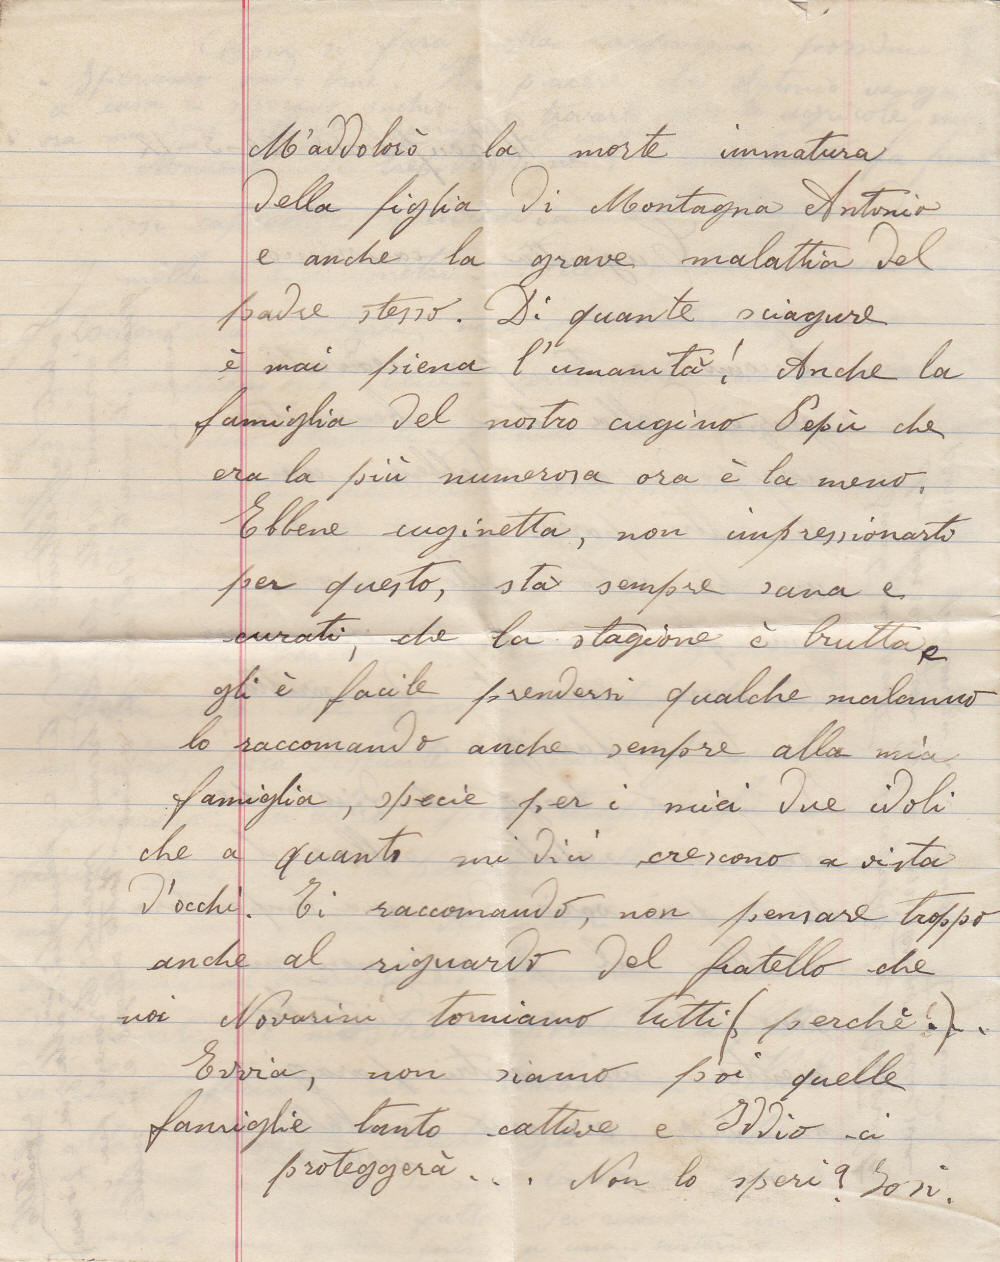 M'addolorò la morte immatura
della figlia di Montagna Antonio
e anche la grave malattia del
padre stesso. Di quante sciagure
è mai piena l'umanità! Anche la
famiglia del nostro cugino Pepù che
era la più numerosa ora è la meno.
Ebbene cuginetta, non impressionarti
per questo, stà sempre sana e
curati, che la stagione è brutta e
gli è facile prendersi qualche malanno
lo raccomando anche sempre alla mia
famiglia, specie per i miei due idoli
che a quanto mi dici crescono a vista
d'occhi. Ti raccomando, non pensare troppo
anche al riguardo del fratello che
noi Novarini torniamo tutti (perchè!)..
Evvia, non siamo poi quelle
famiglie tanto cattive e Iddio ci
proteggerà... Non lo speri? Io si.